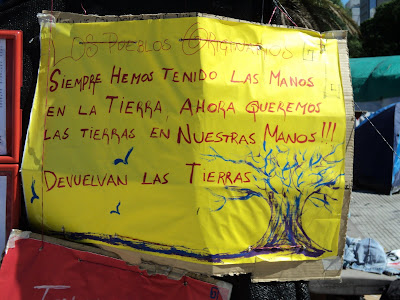 Los Pueblos Originarios
Siempre Hemos Tenido Las Manos
en la Tierra, Ahora Queremos
las tierras en Nuestras Manos!!!
Devuelvan las Tierras